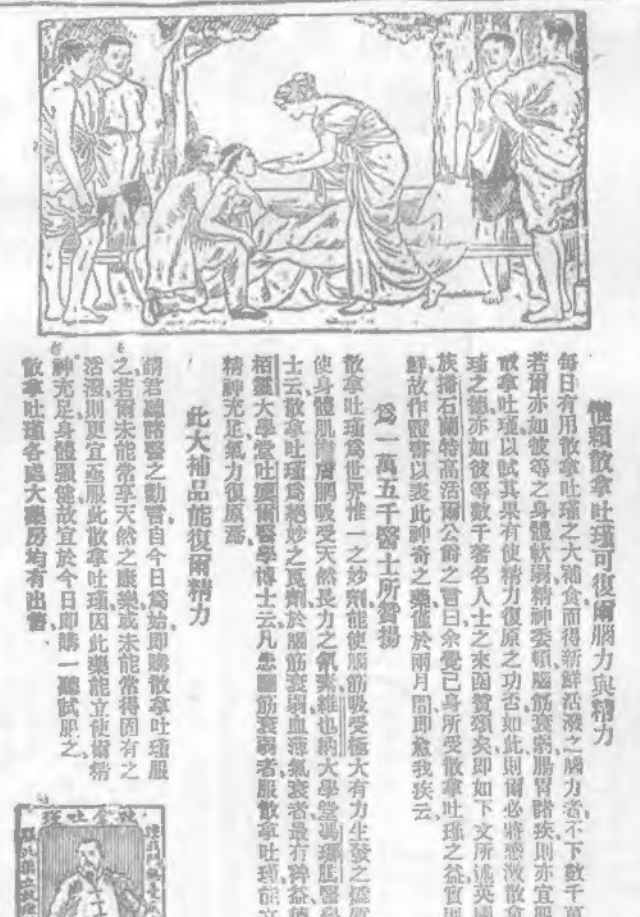 惟賴散拿吐瑾可復爾腦力與精力
每日有用散拿吐瑾之大補食而得新鮮活潑之腦力者不下數千萬
若爾亦如彼等之身體軟弱精神委頓腦筋衰弱腸胃諸疾則亦宜
散拿吐瑾以試其果有使精力復原之功否如此則爾必將感激散拿
瑾之德亦如彼等數千著名人士之來函贊頌矣即如下文所述英
族播石蘭特高活爾公爵之言曰余覺已身所受散拿吐瑾之益實
鮮故作證書以表此神奇之藥僅於兩月間即愈我疾云
為一萬五千醫士所贊揚
散拿吐瑾為世界惟一之妙劑能使腦筋吸受極大有力生發之
使身體肌膚吸受天然長力之維也納大學堂醫
士云散拿吐瑾為絕妙之良劑於腦筋衰弱血薄氣衰者最有裨益
栢靈大學堂吐爾醫學博士云凡患腦筋衰弱者服散拿吐瑾能
精神充足氣力復原焉
此大補品能復爾精力
請君聽諸醫之勸言自今日為始即購散拿吐瑾服
之若爾未能常享天然之康樂或未能常得固有之
活潑則更宜亟服此散拿吐瑾因此藥能立使爾精
神充足身體強健故宜於今日即購一聽試服之
散拿吐瑾各處大藥房均有出售
散拿吐瑾